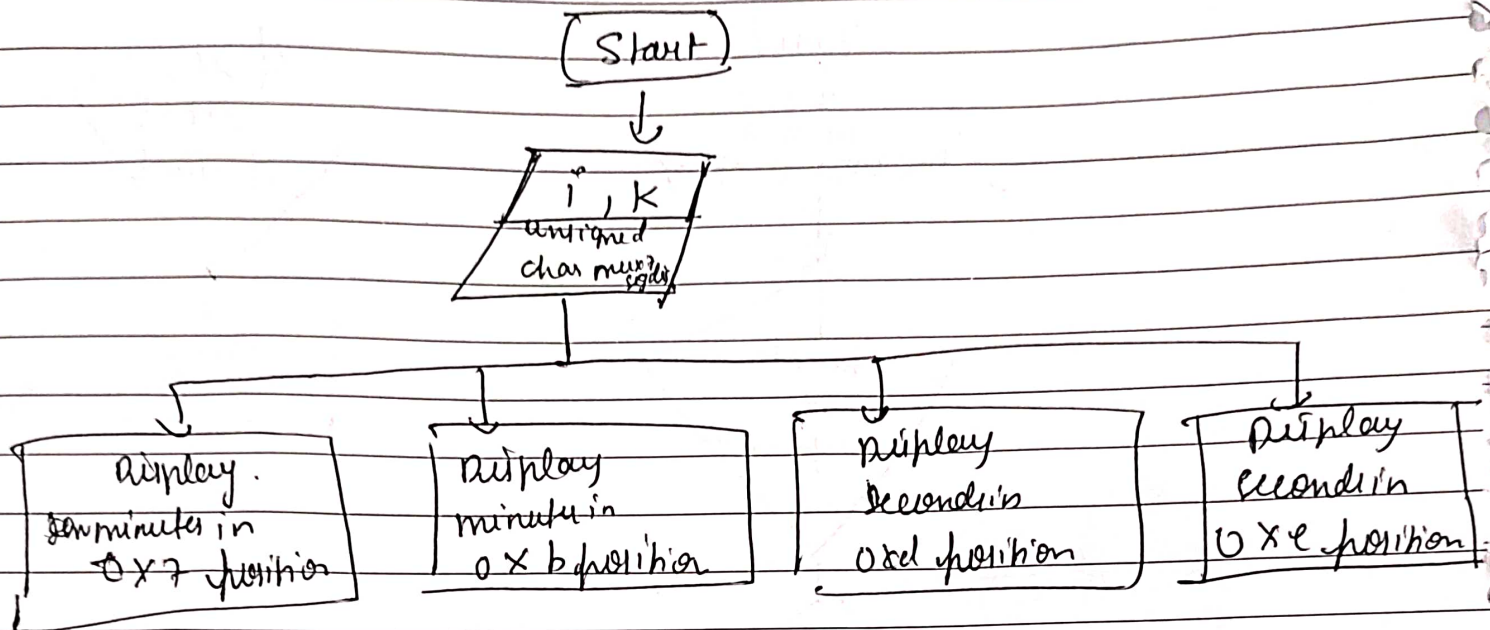 Start
i, K
unsigned
char mux7
segdis
Display.
minutes in
0x7 position
Display
minutes in
0xb position
Display
seconds in
0xd position
Display
seconds in
0xe position